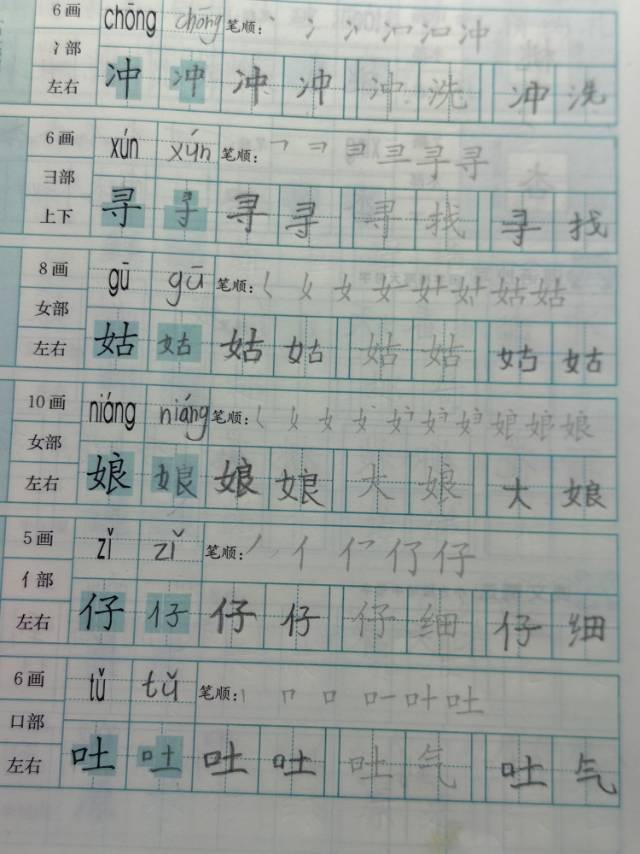 6画 chōng chōng 笔顺: 丶 冫 冫 冫 冲 冲
冫部
左右 冲 冲 冲 冲 冲 洗 冲 洗
6画 xún xún 笔顺: 乛 彐 彐 寻 寻
彐部
上下 寻 寻 寻 寻 寻 找 寻 找
8画 gū gū 笔顺: 女 女 姑 姑
女部
左右 姑 姑 姑 姑 姑 姑 姑 姑
10画 niáng niáng 笔顺: 女 女 娘 娘
女部
左右 娘 娘 娘 娘 大 娘 大 娘
5画 zǐ zǐ 笔顺: 丿 亻 仔 仔
亻部
左右 仔 仔 仔 仔 仔 细 仔 细
6画 tǔ tǔ 笔顺: 丨 口 口 叶 吐
口部
左右 吐 吐 吐 吐 吐 气 吐 气